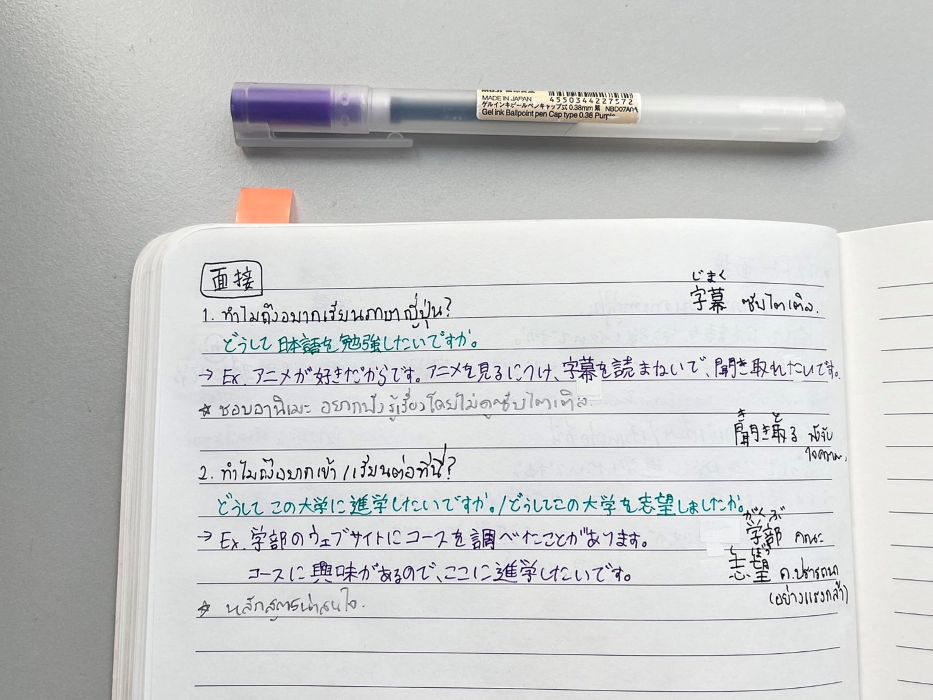 MADE IN JAPAN
4550344227572
ゲルインキボールペンキャップ式 0.38mm 紫 NBD07A
Gel ink Ballpoint pen Cap type 0.38 Purple
面接
じまく
字幕 ซับไตเติล.
1. ทำไมถึงอยากเรียนภาษาญี่ปุ่น?
どうして日本語を勉強したいですか。
→ Ex. アニメが好きだからです。アニメを見るにつけ、字幕を読まないで、聞き取れたいです。
☆ ชอบอานิเมะ อยากฟังรู้เรื่องโดยไม่ดูซับไตเติล
聞き取る ฟังจับ
ใจความ.
2. ทำไมถึงอยากเข้า/เรียนต่อที่นี่?
どうしてこの大学に進学したいですか。/どうしてこの大学を志望しましたか。
がくぶ
学部 คณะ
→ Ex. 学部のウェブサイトにコースを調べたことがあります。
しぼう
志望 ค.ปรารถนา
(อย่างแรงกล้า)
コースに興味があるので、ここに進学したいです。
☆ หลักสูตรน่าสนใจ.